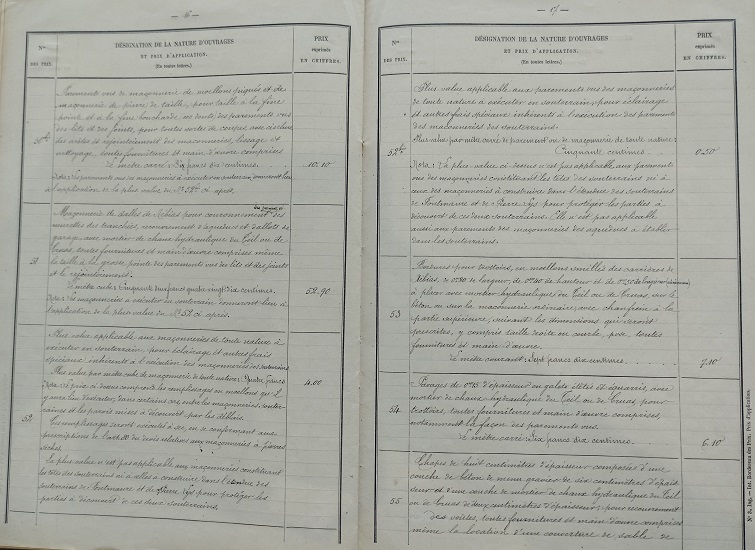 — 16 —
Nos
DES PRIX.
DÉSIGNATION DE LA NATURE D'OUVRAGES
ET PRIX D'APPLICATION.
(En toutes lettres.)
PRIX
exprimés
EN CHIFFRES.
Parements vus de maçonnerie de moellons piqués et de
maçonnerie de pierre de taille, pour taille à la fine
pointe et à la fine boucharde
des lits et des joints, pour toutes sortes de coupes
et rejointoiement des maçonneries, lissage et
nettoyage, toutes fournitures et main d'œuvre comprises
Le mètre carré : Dix francs dix centimes.
10.10
Nota : Les parements vus des maçonneries à exécuter en souterrain, donneront lieu
à l'application de la plus value du Nº 52 ci après.
51
Maçonnerie de dalles de pour couronnement des
murettes des tranchées, recouvrement d'aqueducs et
garage, avec mortier de chaux hydraulique du Teil ou de
Cruas, toutes fournitures et main d'œuvre comprises même
la taille à la grosse pointe des parements vus des lits et des joints
et le rejointoiement.
Le mètre cube : Cinquante deux francs quatre vingt dix centimes.
52.90
Nota : Les maçonneries à exécuter en souterrain donneront lieu à
l'application de la plus value du Nº 52 ci après.
52
Plus value applicable aux maçonneries de toute nature à
exécuter en souterrain, pour éclairage et autres frais
spéciaux inhérents à l'exécution des maçonneries en souterrain
Plus value par mètre cube de maçonnerie de toute nature : Quatre francs
4.00
Nota : Ce prix ci dessus comprend les remplissages en moellons qu'il
y aura lieu d'exécuter, dans certains cas, entre les maçonneries
et les parois mises à découvert par les déblais.
Les remplissages seront exécutés à sec, en se conformant aux
prescriptions de l'art. du devis relatives aux maçonneries à pierres
sèches.
La plus value n'est pas applicable aux maçonneries constituant
les têtes des souterrains ni à celles à construire dans l'étendue des
souterrains de Fontenaire et de Pierre-Eys pour protéger les
parties à découvert de ces deux souterrains.
— 17 —
Nos
DES PRIX.
DÉSIGNATION DE LA NATURE D'OUVRAGES
ET PRIX D'APPLICATION.
(En toutes lettres.)
PRIX
exprimés
EN CHIFFRES.
52 bis
Plus value applicable aux parements vus des maçonneries
de toute nature à exécuter en souterrain, pour éclairage
et autres frais spéciaux inhérents à l'exécution des parements
des maçonneries des souterrains.
Plus value par mètre carré de parement vu de maçonnerie de toute nature :
Cinquante centimes.
0.50
Nota : La plus value ci dessus n'est pas applicable aux parements
vus des maçonneries constituant les têtes des souterrains ni à
ceux des maçonneries à construire dans l'étendue des souterrains
de Fontenaire et de Pierre-Eys pour protéger les parties à
découvert de ces deux souterrains. Elle n'est pas applicable
aussi aux parements des maçonneries des aqueducs à établir
dans les souterrains.
53
Bordures pour trottoirs, en moellons smillés des carrières de
de 0m30 de largeur, de 0m30 de hauteur et de
à placer avec mortier hydraulique du Teil ou de Cruas, sur le
béton ou sur la maçonnerie ordinaire, avec chanfrein à la
partie supérieure, suivant les dimensions qui seront
prescrites, y compris taille droite ou courbe, pose, toutes
fournitures et main d'œuvre.
Le mètre courant : Sept francs dix centimes.
7.10
54
Pavages de 0m15 d'épaisseur en galets étêtés et équarris, avec
mortier de chaux hydraulique du Teil ou de Cruas, pour
trottoirs, toutes fournitures et main d'œuvre comprises,
notamment la façon des parements vus.
Le mètre carré : Six francs dix centimes.
6.10
55
Chapes de huit centimètres d'épaisseur composées d'une
couche de béton de menu gravier de six centimètres d'épais
seur et d'une couche de mortier de chaux hydraulique du Teil
ou de Cruas de deux centimètres d'épaisseur, pour recouvrement
des voûtes, toutes fournitures et main d'œuvre comprises
même la location d'une couverture de sable de